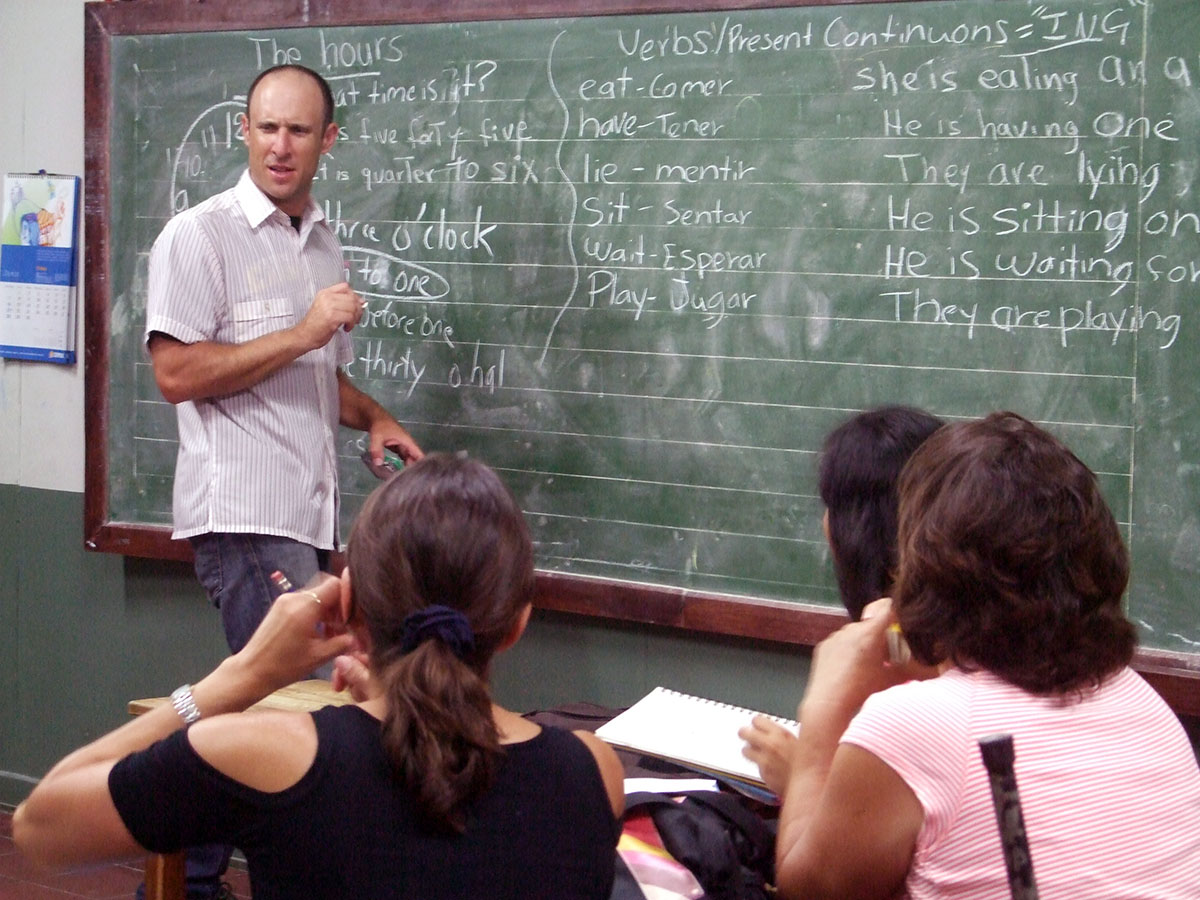 The hours
time is it?
12
11
five forty five
10
is quarter to six
9
three o'clock
to one
before one
thirty
Verbs/Present Continuous = "ING"
eat-Comer
have-Tener
lie - mentir
Sit - Sentar
Wait-Esperar
Play-Jugar
she is eating an a
He is having one
They are lying
He is sitting on
He is waiting for
They are playing